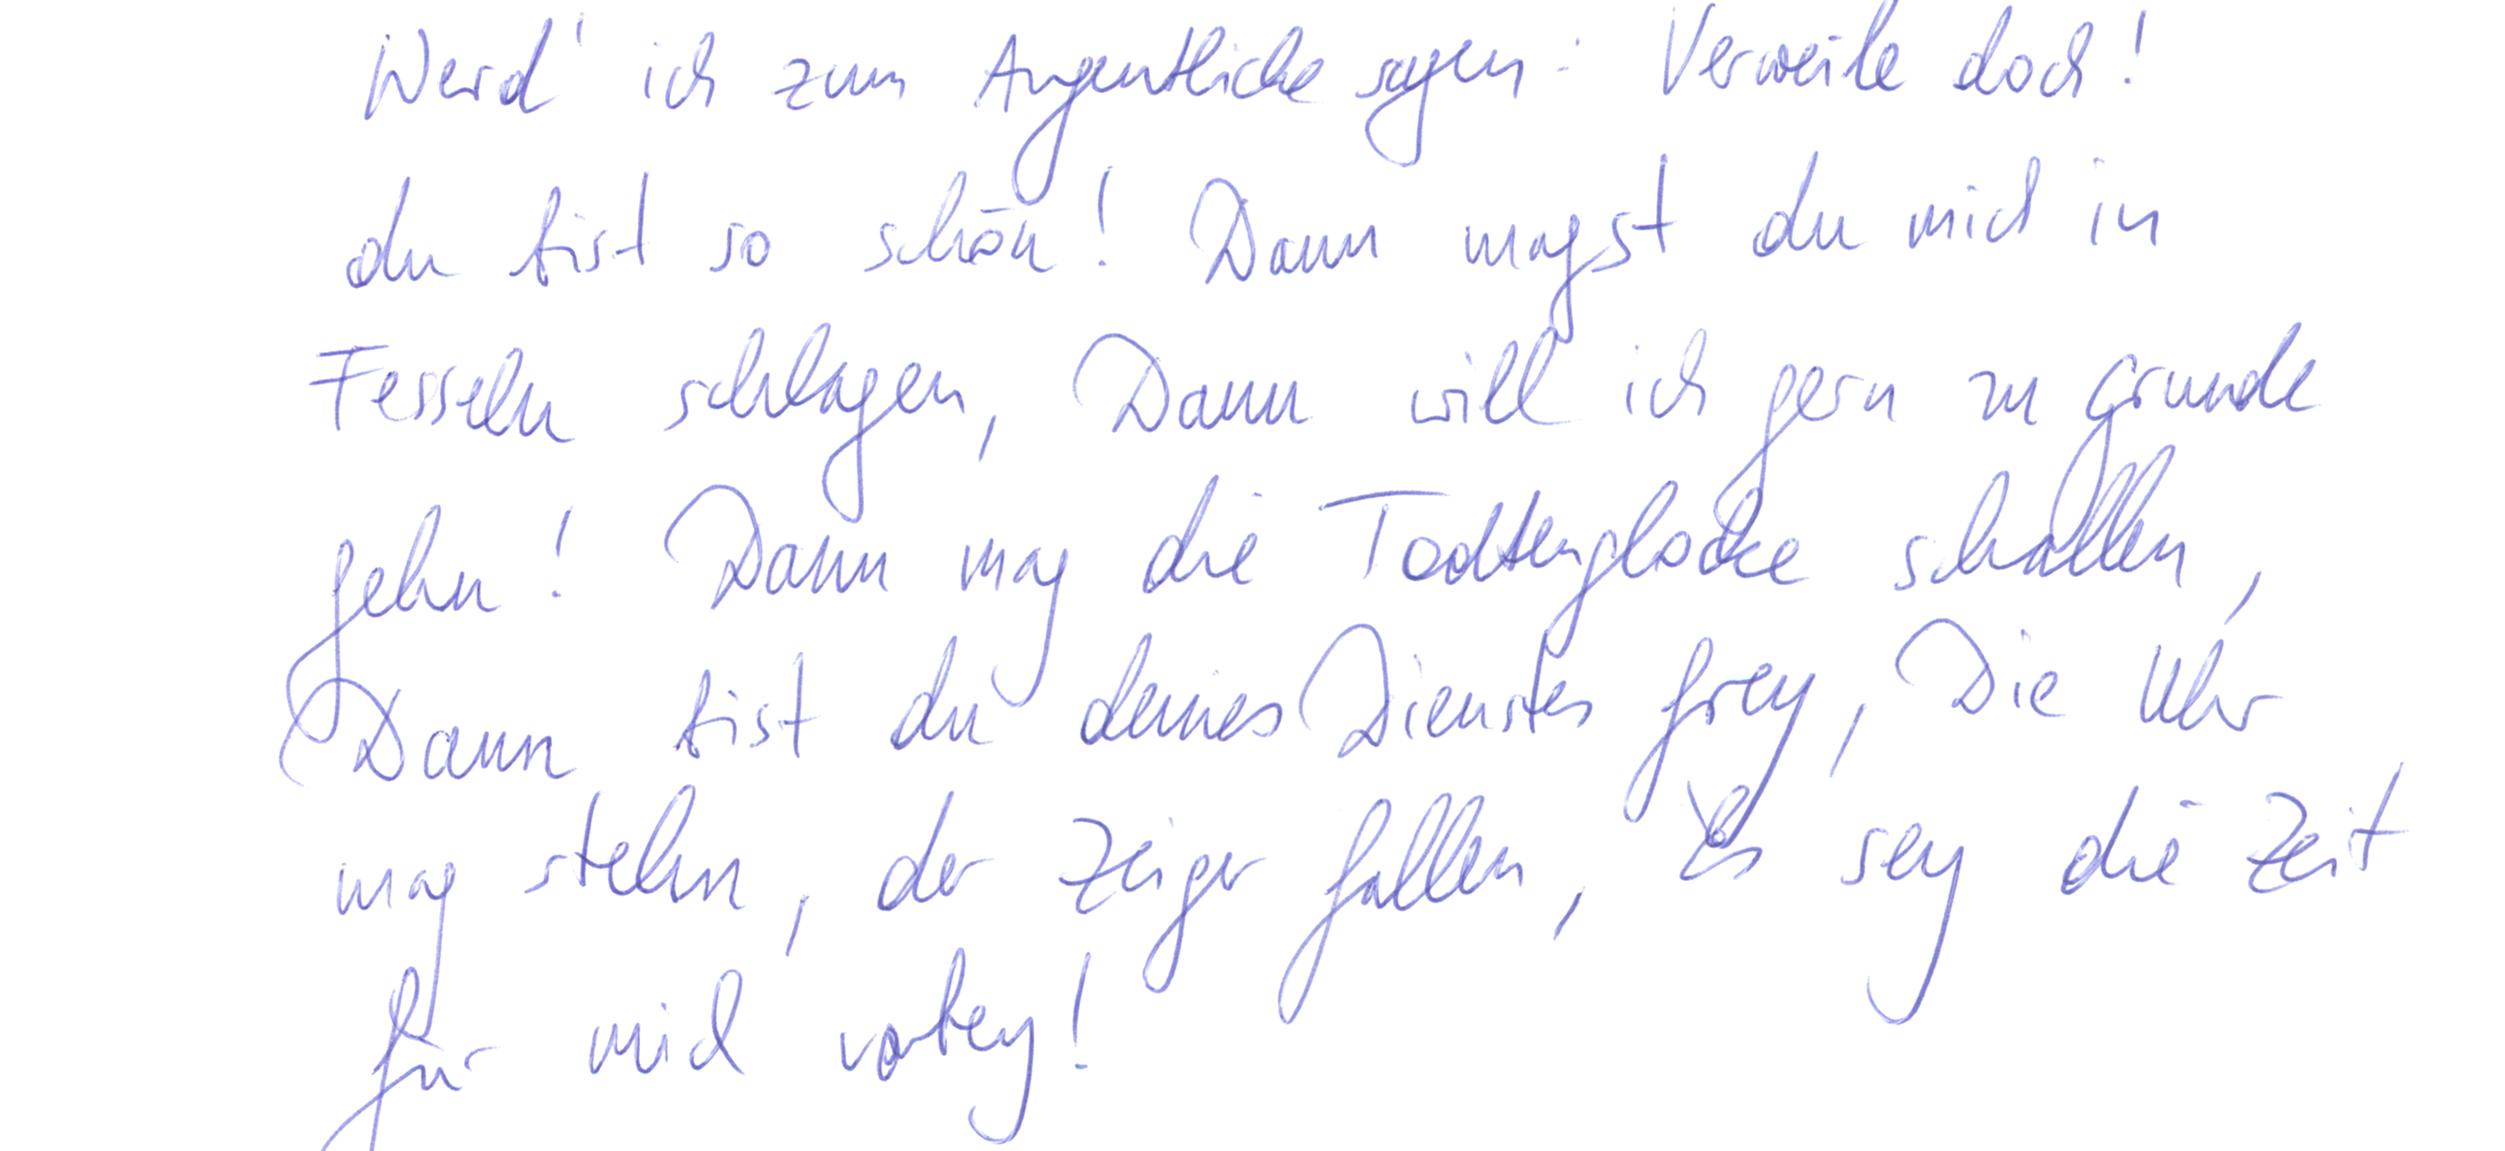 Werd' ich zum Augenblicke sagen: Verweile doch!
du bist so schön! Dann magst du mich in
Fesseln schlagen, Dann will ich gern zu Grunde
gehn! Dann mag die Todtenglocke schallen,
Dann bist du deines Dienstes frey, Die Uhr
mag stehn, der Zeiger fallen, Es sey die Zeit
für mich vorbey!